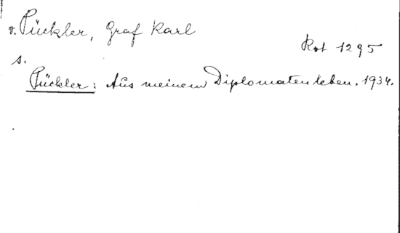 v. Pückler, Graf Karl
Rot 1295
s.
Pückler: Aus meinem Diplomatenleben. 1934.